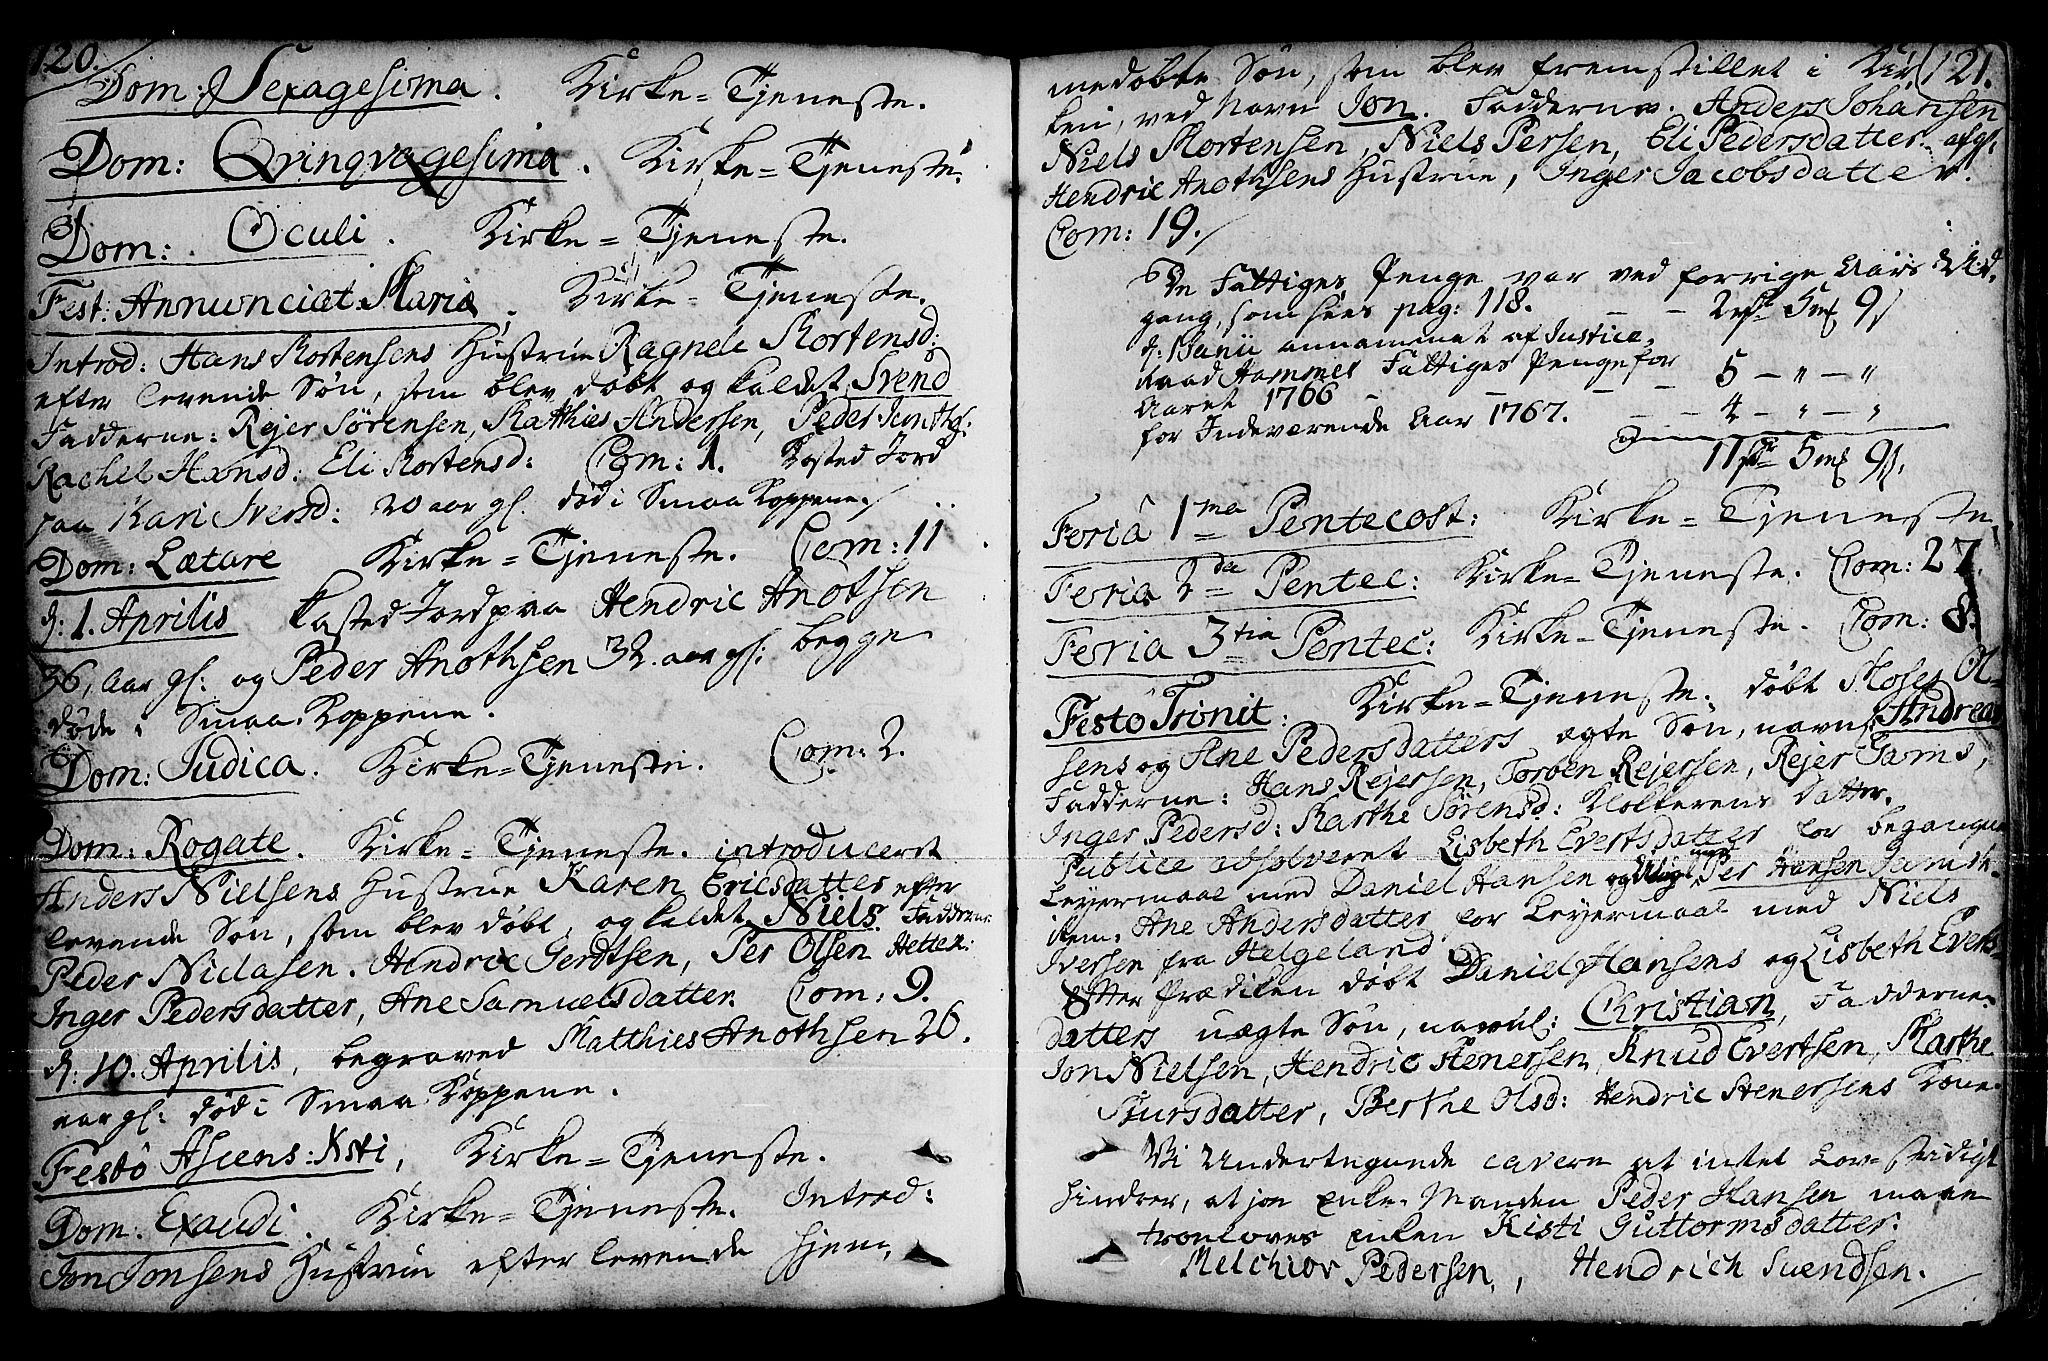 120.
Dom: Sexagesima. Kirke=Tjeneste.
Dom: Qvinqvagesima. Kirke=Tjeneste.
Dom: Oculi. Kirke=Tjeneste.
Fest: Annunciat: Mariæ. Kirke=Tjeneste.
Introd: Hans Mortensens Hustrue Ragnele Mortensd:
efter levende Søn, som blev døbt og kaldet Svend
Fadderne: Rejer Sørensen, Matthies Andersen, Peder
Rachel Hansd: Eli Mortensd: Com: 1. Kasted Jord
paa Kari Iversd: 20 aar gl. død i Smaa Koppene.
Dom: Lætare Kirke=Tjeneste. Com: 11
d: 1. Aprilis Kasted Jord paa Hendric Anothsen
36, Aar gl: og Peder Anothsen 32. aar gl: begge
døde i Smaa Koppene.
Dom: Judica. Kirke=Tjeneste. Com: 2.
Dom: Rogate. Kirke=Tjeneste. introduceret
Anders Nielsens Hustrue Karen Ericsdatter efter
levende Søn, som blev døbt, og kaldet Niels. Fadderne:
Peder Niclasen. Hendric Gerdtsen, Per Olsen Hetten:
Inger Pedersdatter, Ane Samuelsdatter. Com: 9.
d: 10. Aprilis, begraved Matthies Anothsen 26.
aar gl: død i Smaa Koppene.
Festo Ascens: Xsti, Kirke=Tjeneste.
Dom: Exaudi. Kirke=Tjeneste. Introd:
Jon Jonsens Hustrue efter levende hjem,
121.
medøbte Søn, som blev fremstillet i Kir
ken, ved Navn Jon. Fadderne. Anders Johansen
Niels Mortensen, Niels Persen, Eli Pedersdatter. afg:
Hendric Anothsens Hustrue, Inger Jacobsdatter.
Com: 19.
De Fattiges Penge var ved forrige Aars Ud-
gang, som sees pag: 118. - - 2 rdr 5 mk 9 s
d: Junii annammet af Justice-
Raad Hammer Fattiges Penge for
Aaret 1766 - - 5 - " - "
for Indeværende Aar 1767. - - 4 - " - "
11 rdr 5 mk 9 s.
Feria 1ma Pentecost: Kirke=Tjeneste.
Feria 2da Pentec: Kirke=Tjeneste. Com: 27.
Feria 3tia Pentec: Kirke=Tjeneste. Com: 8.
Festo Trinit: Kirke=Tjeneste. døbt Moses Ol-
sens og Ane Pedersdatters ægte Søn, navnl: Andreas
Fadderne: Hans Rejersen, Torben Rejersen, Rejer Jarns,
Inger Pedersd: Marthe Sørensd: Datter.
Publice absolveret Lisbeth Evertsdatter for begangne
Lejermaal med Daniel Hansen og Per Hansen
item, Ane Andersdatter for Lejermaal med Niels
Iversen fra Helgeland
Efter Prædiken døbt Daniel Hansens og Lisbeth Everts
datters uægte Søn, navnl: Christian, Fadderne:
Jon Nielsen, Hendric Stenersen, Knud Evertsen, Marthe
Sjursdatter, Berthe Olsd: Hendric Stenersens Kone.
Vi Undertegnede cavere at intet Lov=stridigt
hindrer, at jo Enke=Manden Peder Hansen maae
troeloves Enken Kisti Guttormsdatter.
Melchior Pedersen, Hendrich Suendsen.